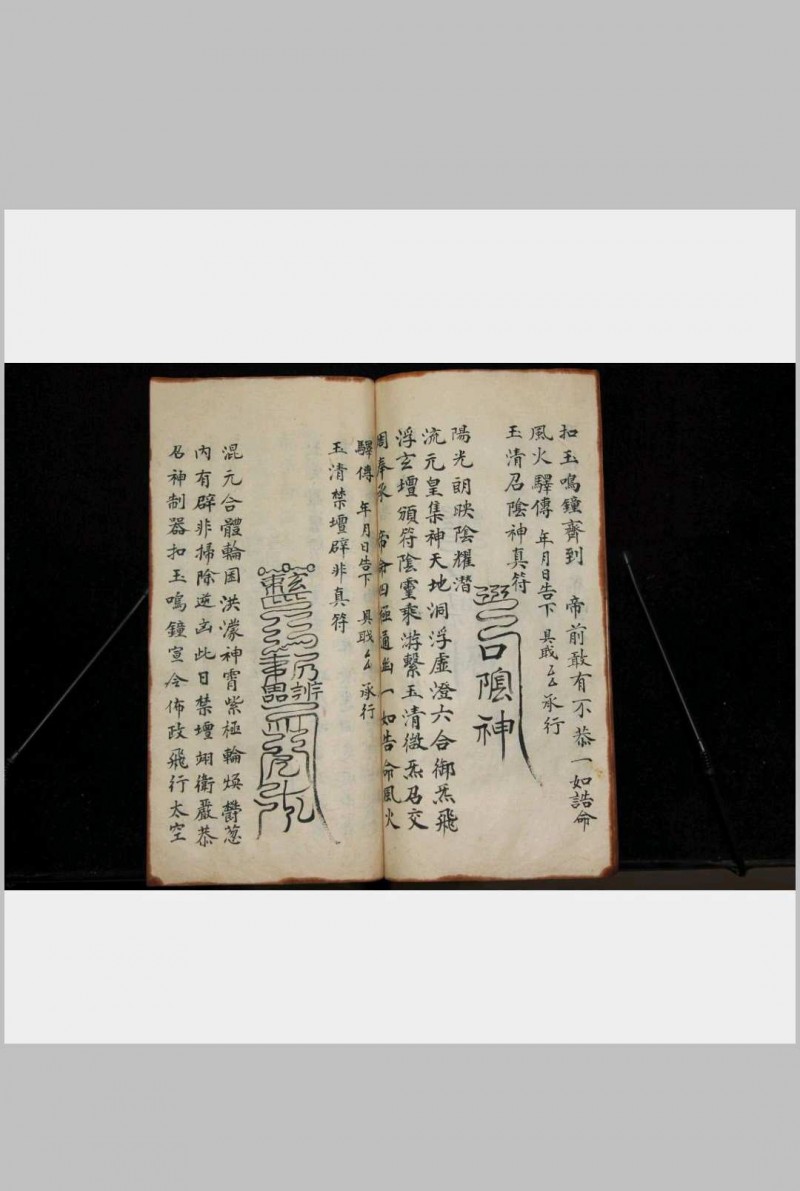 扣玉鳴鐘齊到　帝前敢有不恭一如誥命
風火驛傳　年月日告下　具戝厶厶承行
玉清召陰神真符
召陰神
陽光朗映陰耀潛
流元皇集神天地洞浮虛澄六合御炁飛
浮玄壇頒符陰靈乘游繫玉清徵炁召交
周奉承　帝命四極通幽一如告命風火
驛傳　年月日告下　具戝厶厶承行
玉清禁壇辟非真符
混元合體輪囷洪濛神霄紫極輪煥欝蔥
內有辟非掃除逆凶此日禁壇翊衛嚴恭
召神制器扣玉鳴鐘宣令佈政飛行太空